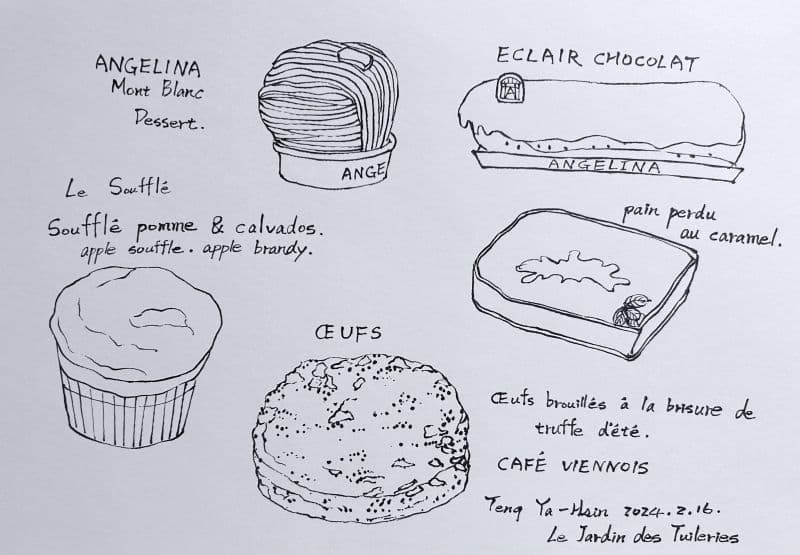 ANGELINA
Mont Blanc
Dessert.
ANGE
ECLAIR CHOCOLAT
A
ANGELINA
Le Soufflé
Soufflé pomme & calvados.
apple souffle. apple brandy.
pain perdu
au caramel.
ŒUFS
Œufs brouillés à la brisure de
truffe d'été.
CAFÉ VIENNOIS
Teng Ya-Hsin 2024.2.16.
Le Jardin des Tuileries